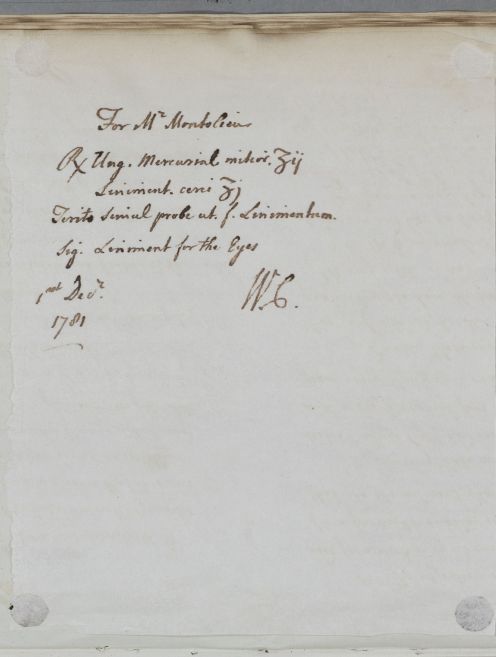 For Mr Montolieu
℞ Ung. Mercurial mitior. ʒij
Liniment. cerei ʒj
Terito simul probe ut. f. Linimentum.
Sig. Liniment for the Eyes
1st Decr.
W.C.
1781